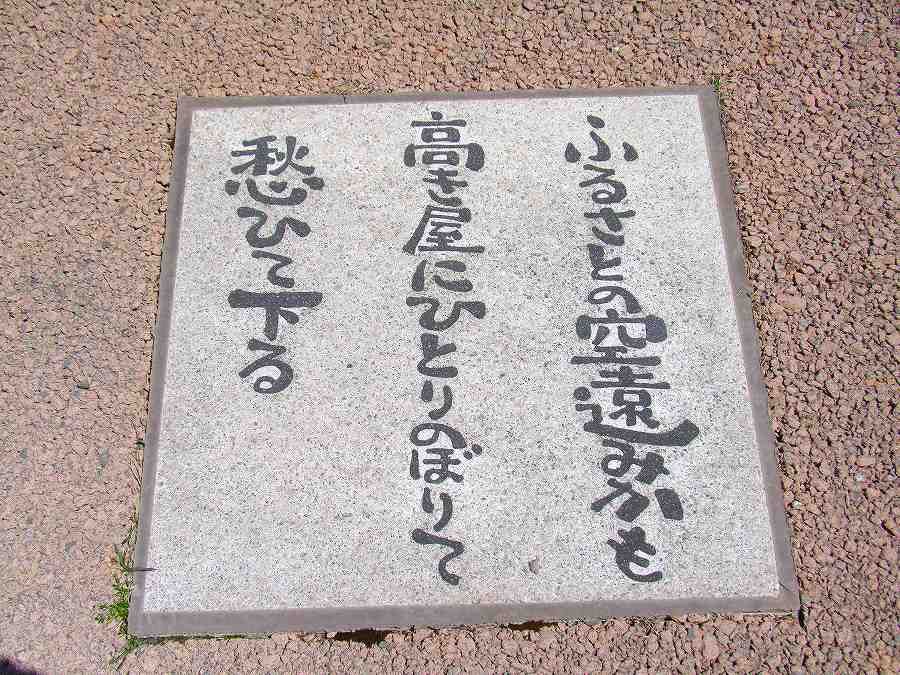 ふるさとの空遠みかも
高き屋にひとりのぼりて
愁ひて下る